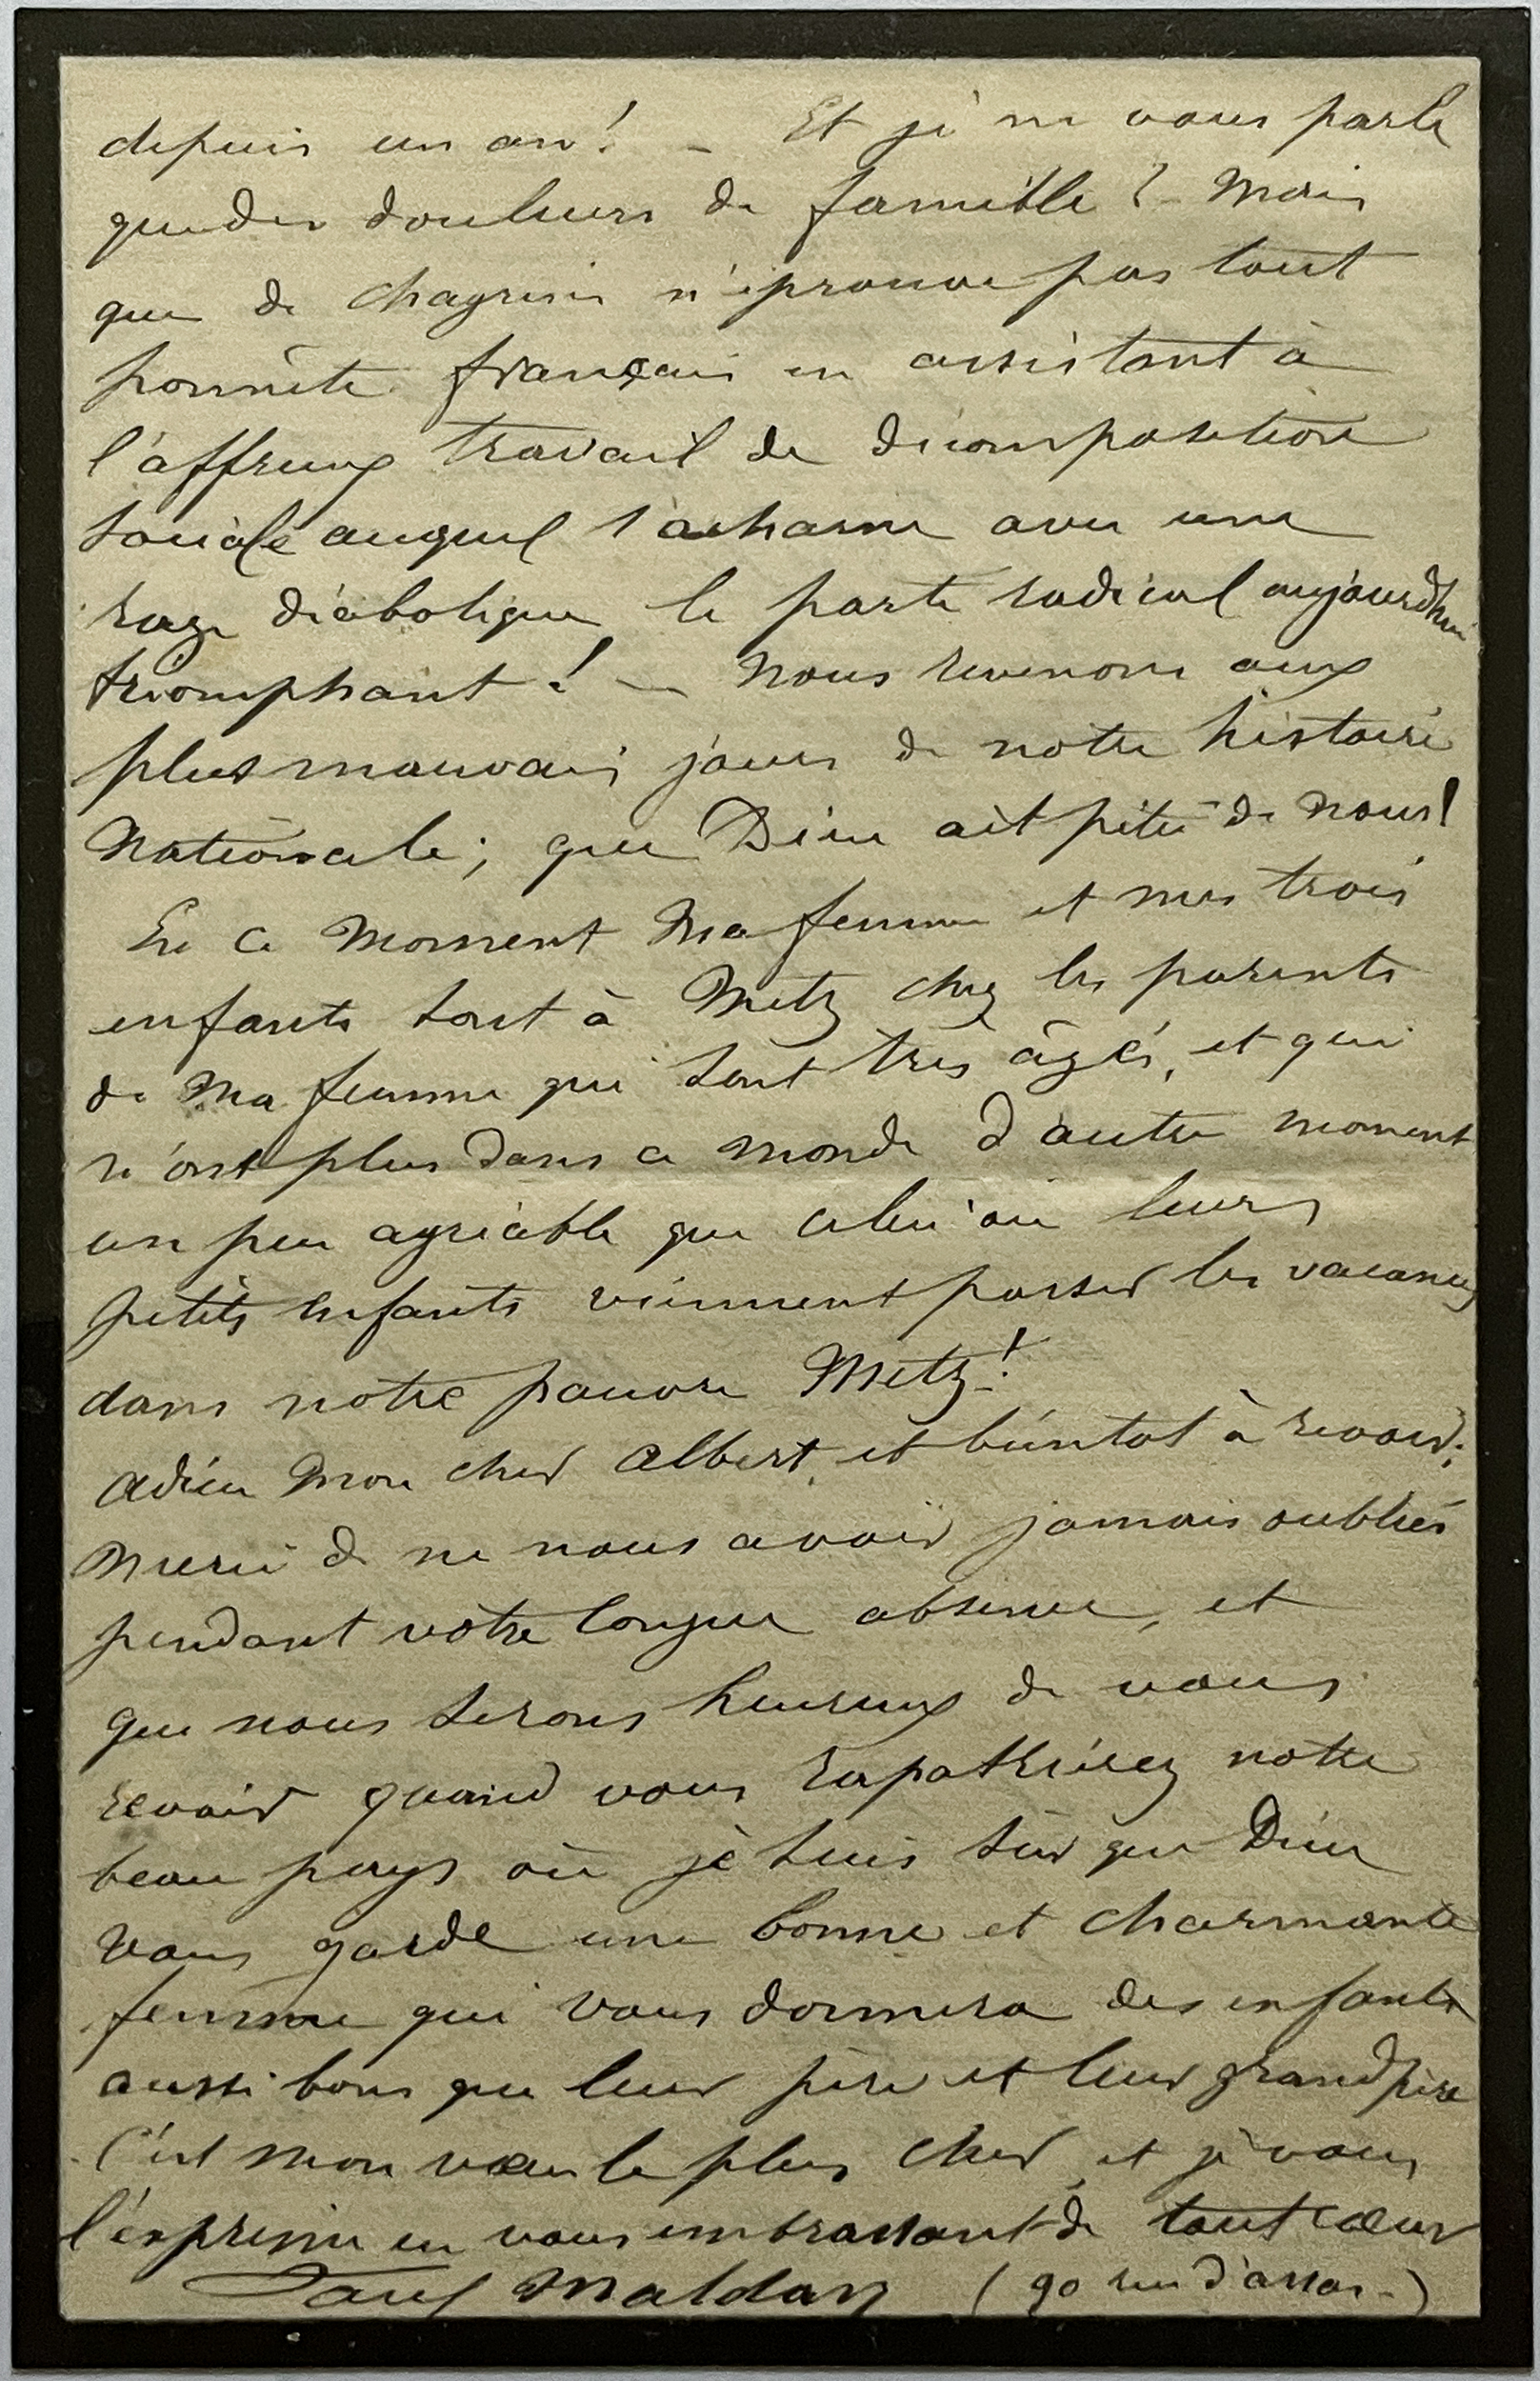 depuis un an! – Et je ne vous parle
que des douleurs de famille? – Mais
que de chagrins n'éprouve pas tout
honnête français en assistant à
l'affreux travail de décomposition
sociale auquel s'acharne avec une
rage diabolique le parti radical aujourd'hui
triomphant! – Nous revenons aux
plus mauvais jours de notre histoire
Nationale; que Dieu ait pitié de nous!
En ce moment Ma femme et mes trois
enfants sont à Metz chez les parents
de Ma femme qui sont très âgés, et qui
n'ont plus dans ce monde d'autre moment
un peu agréable que celui où leurs
petits enfants viennent passer les vacances
dans notre pauvre Metz!
Adieu Mon cher Albert, et bientot à revoir;
Merci de ne nous avoir jamais oubliés
pendant votre longue absence, et
que nous serons heureux de vous
revoir quand vous rapatrierez notre
beau pays où je suis sûr que Dieu
vous garde une bonne et charmante
femme qui vous donnera des enfants
aussi bons que leur père et leur grand père
C'est mon vœu le plus cher, et je vous
l'exprime en vous embrassant de tout cœur
Paul Maldan (90 rue d'assas –)